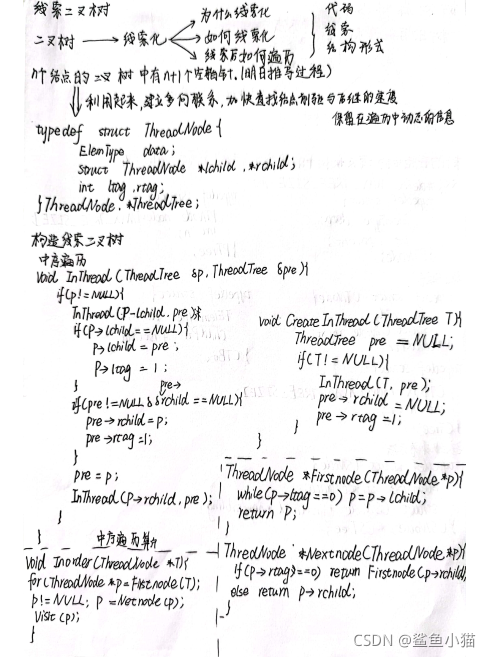 线索二叉树
二叉树 → 线索化
为什么线索化
如何线索化
线索后如何遍历
代码
线索
结构形式
n个结点的二叉树中有n+1个空指针.(明日推导过程)
利用起来,建立多向联系,加快查找结点前驱与后继的速度
保留在遍历中动态的信息
typedef struct ThreadNode{
ElemType data;
struct ThreadNode *lchild, *rchild;
int ltag,rtag;
}ThreadNode, *ThreadTree;
构造线索二叉树
中序遍历
Void InThread(ThreadTree &p, ThreadTree &pre){
if(p!=NULL){
InThread(P-lchild, pre);
if(P→lchild==NULL){
P→lchild=pre;
P→ltag = 1;
}
pre→
if(pre!=NULL&&rchild==NULL){
pre→rchild=p;
pre→rtag=1;
}
pre=p;
InThread(P→rchild, pre);
}
}
void CreateInThread(ThreadTree T){
ThreadTree pre = NULL;
if(T!=NULL){
InThread(T, pre);
pre→rchild=NULL;
pre→rtag=1;
}
}
ThreadNode *Firstnode(ThreadNode *p){
while(p→ltag==0) p=p→lchild;
return P;
}
中序遍历算法
Void Inorder(ThreadNode *T){
for(ThreadNode *p=Fistnode(T);
p!=NULL; p=Netnode(p);
Visit(p);
}
ThredNode *Nextnode(ThreadNode *p){
if(p→rtag)==0) return Firstnode(p→rchild)
else return p→rchild;
}
CSDN @鲨鱼小猫